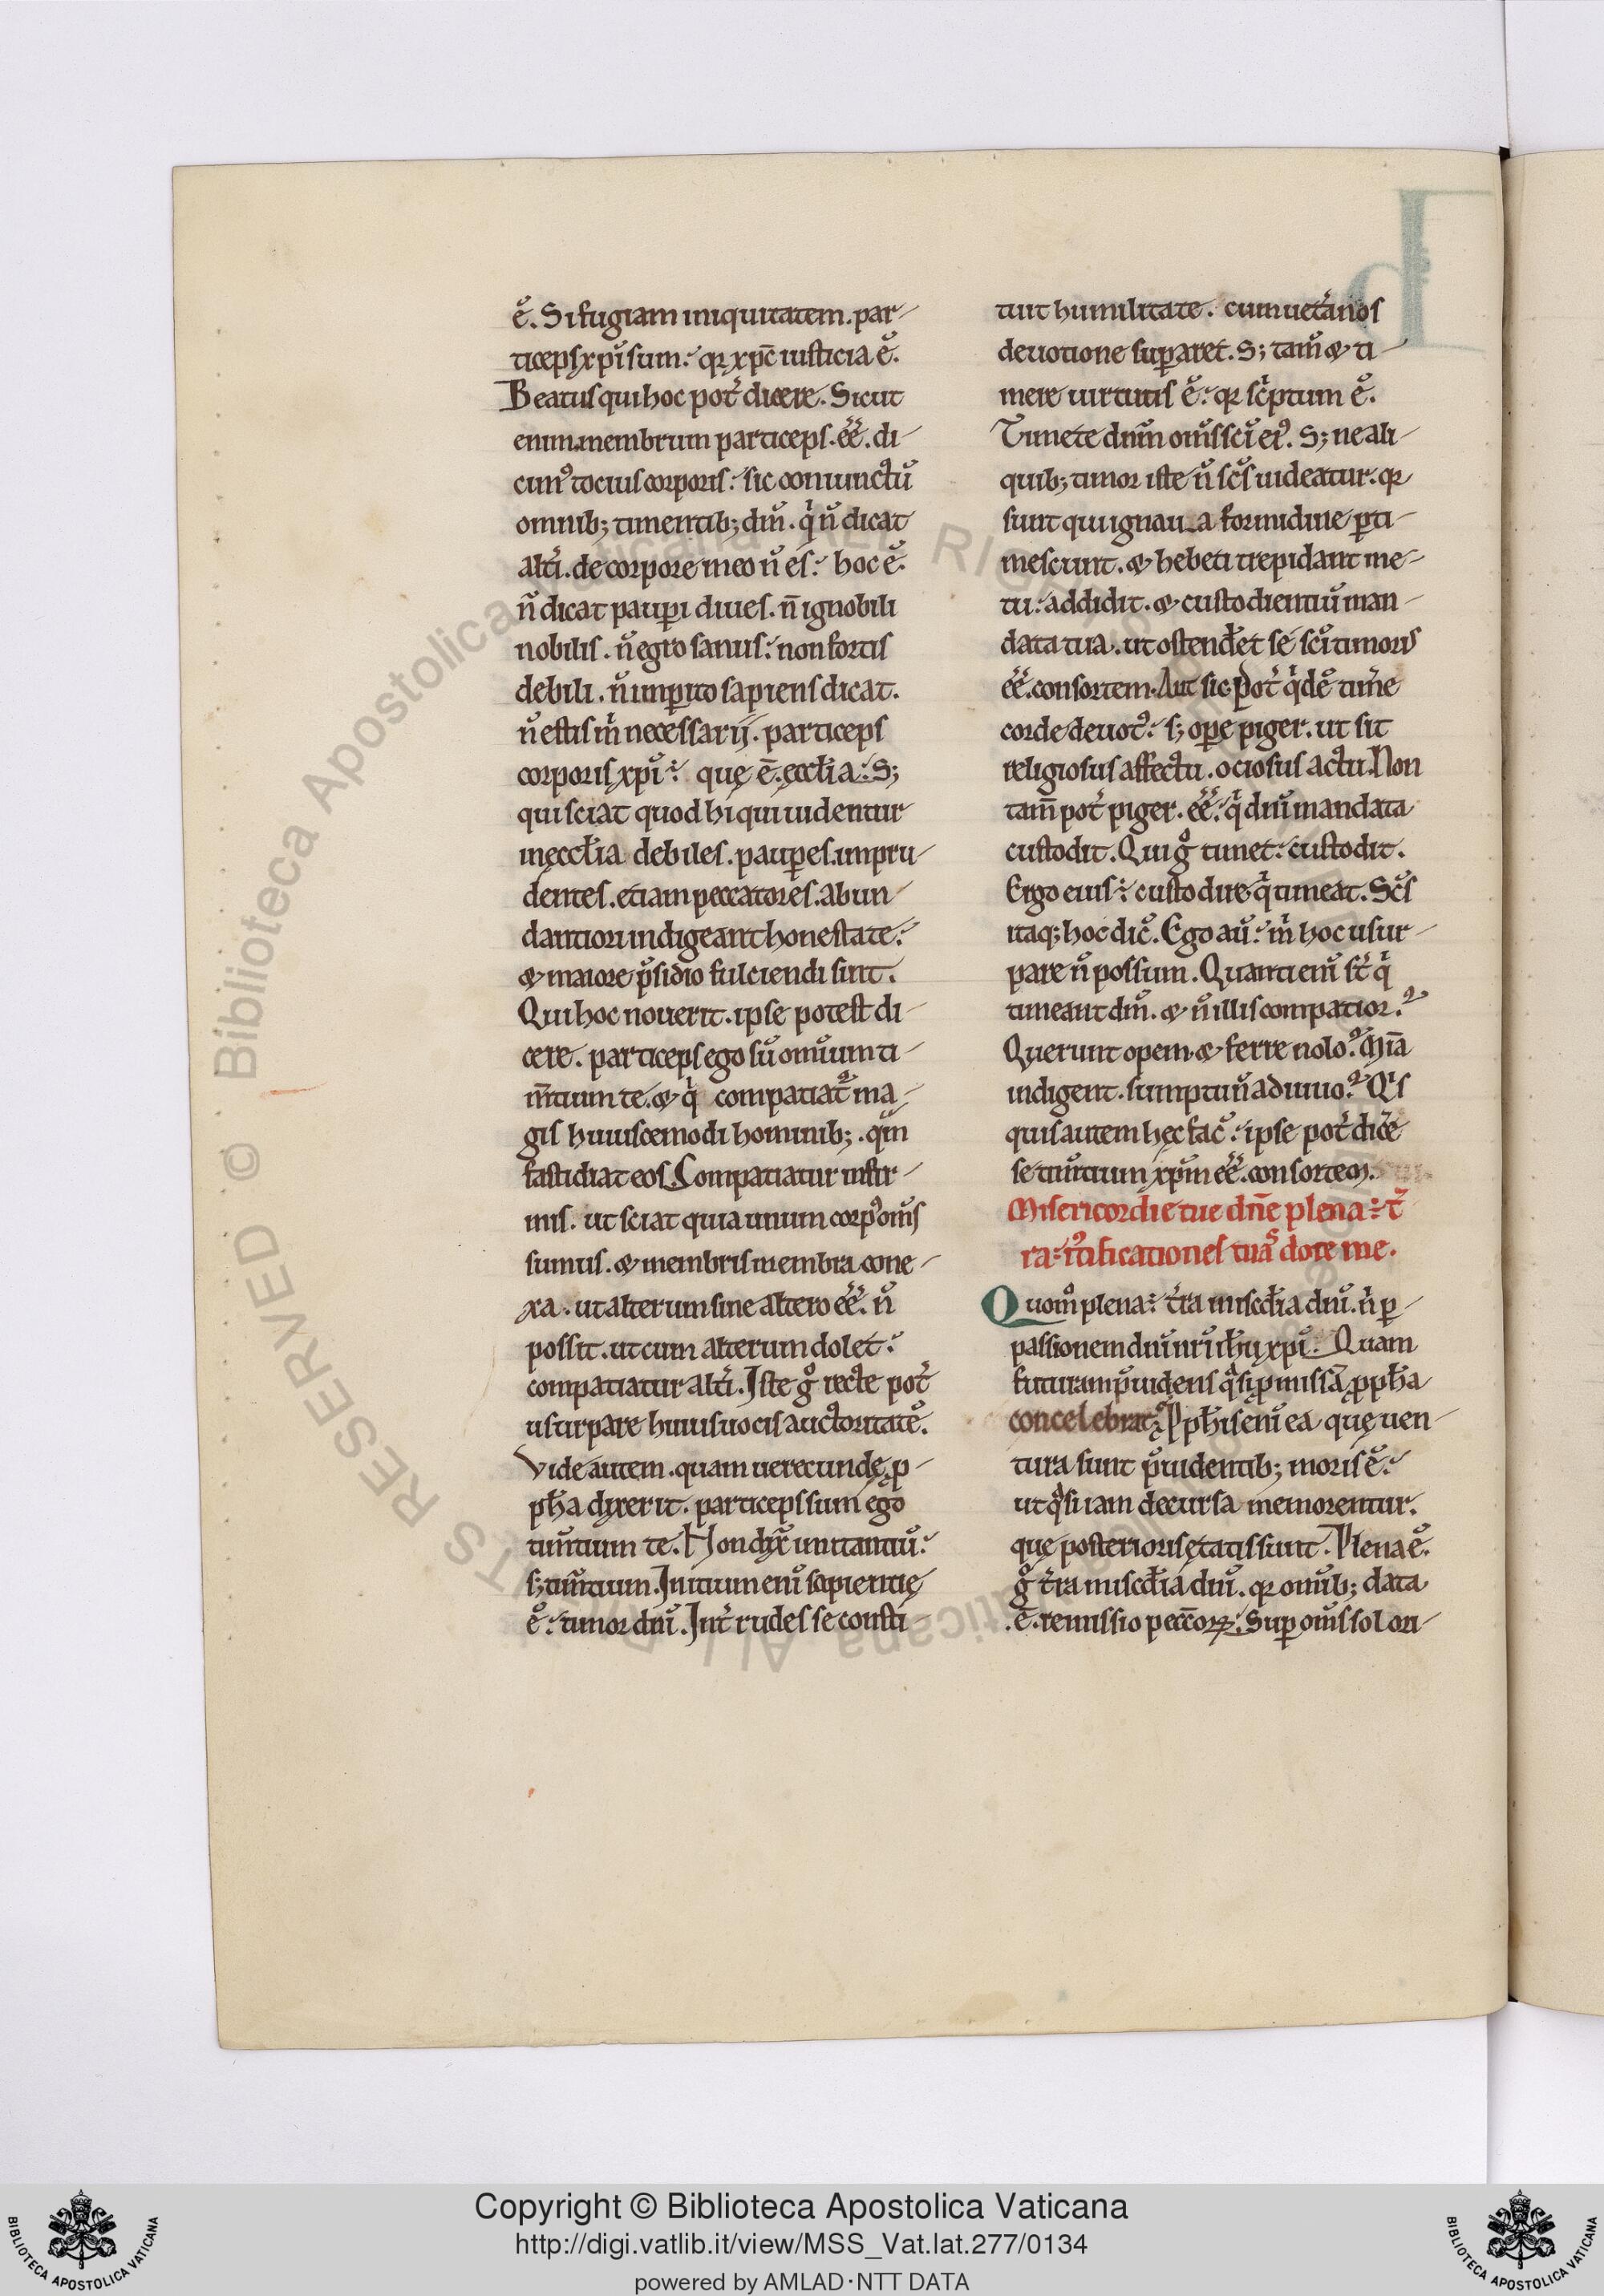 ē. Si fugiam iniquitatem. par-
ticeps xpi sum: qꝛ xpc iusticia ē.
Beatus qui hoc pot dicere. Sicut
enim membrum particeps. ēē. di-
cimꝰ tocius corporis: sic coniunctū
omnib; timentib; dm̄. q̇ n̄ dicat
altı̇. de corpore meo n̄ es: hoc ē.
n̄ dicat paup̄i diues. n̄ ignobili
nobilis. n̄ egro sanus: non fortis
debili. n̄ imp̄ito sapiens dicat.
n̄ estis ṁ necessarij. particeps
corporis xpi: quę ē. ęcclia: S;
qui sciat quod hi qui uidentur
in ęcclia debiles. paup̄es. impru-
dentes. etiam peccatores. abun-
dantiori indigeant honestate:
⁊ maiore p̄sidio fulciendi sint.
Qui hoc nouerit. ipse potest di-
cere. particeps ego sū omium ti-
m̄tium te. ⁊ q̇ compatiat᷑ ma-
gis huiuscemodi hominib;. qm̄
fastidiat eos. Compatiatur infir-
mis. ut sciat quia unum corpꝰ om̄s
sumus. ⁊ membris membra cone-
xa. ut alterum sine altero ēē. n̄
possit. ut cum alterum dolet:
compatiatur altı̇. Iste g̊ recte pot
usurpare huius uocis auctoritatē.
Vide autem. quam uerecundę p̱-
pha dixerit. particeps sum ego
tim̄tium te. Non dix̄ imitantiū:
s; tim̄tium. Initium eni sapientię
ē: timor dn̄i. Int̄ rudes se consti-
tuit humilitate. cum uet̄anos
deuotione sup̄aret. S; tam̄ ⁊ ti-
mere uirtutis ē: qꝛ sċptum ē.
Timete dnm̄ om̄s sc̄i eiꝰ. S; ne ali-
quib; timor iste n̄ sc̄s uideatur. qꝛ
sunt qui ignaua formidine p̄ti-
mescunt. ⁊ hebeti trepidant me-
tu: addidit. ⁊ custodientiū man-
data tua. ut ostend̄et se sc̄i timoris
ēē. consortem. Aut sic. Pot q̇dē tim̄e
corde deuotꝰ: s; op̄e piger. ut sit
religiosus affectu. ociosus actu. Non
tam̄ pot piger. ēē: q̇ dn̄i mandata
custodit. Qui g̊ timet: custodit.
Ergo eius: custodire. q̇ timeat. Sc̄s
itaq; hoc dic̄. Ego aū: ṁ hoc usur-
pare n̄ possum. Quanti eni st̄ q̇
timeant dm̄. ⁊ n̄ illis compatior.
Querunt opem. ⁊ ferre nolo. Mia
indigent. sumptu n̄ adiuuo. Qis
quis autem hęc fac̄: ipse pot dic̄e
se tim̄tium xpm̄ ēē. consortem.
Misericordie tue dn̄e plena: t̄
ra: iꝰtificationes tuas dore me.
Quom̊ plena: t̄ra miscd̄ia dn̄i. n̄ p̄
passionem dn̄i nr̄i ih̄u xpi: Quam
futuram p̄uidens q̄si p̱missā p̱pha
concelebrat. P̱phis eni ea quę uen-
tura sunt p̄uidentib; moris ē:
ut q̄si iam decursa memorentur.
quę posterioris ętatis sunt. Plena ē.
g̊ t̄ra miscd̄ia dn̄i. qꝛ omib; data
.ē. remissio pecc̄oꝝ: Sup̄ om̄s sol ori-
© Biblioteca Apostolica Vaticana ALL RIGHTS RESERVED
Copyright © Biblioteca Apostolica Vaticana
http://digi.vatlib.it/view/MSS_Vat.lat.277/0134
powered by AMLAD·NTT DATA
BIBLIOTECA APOSTOLICA VATICANA
BIBLIOTECA APOSTOLICA VATICANA